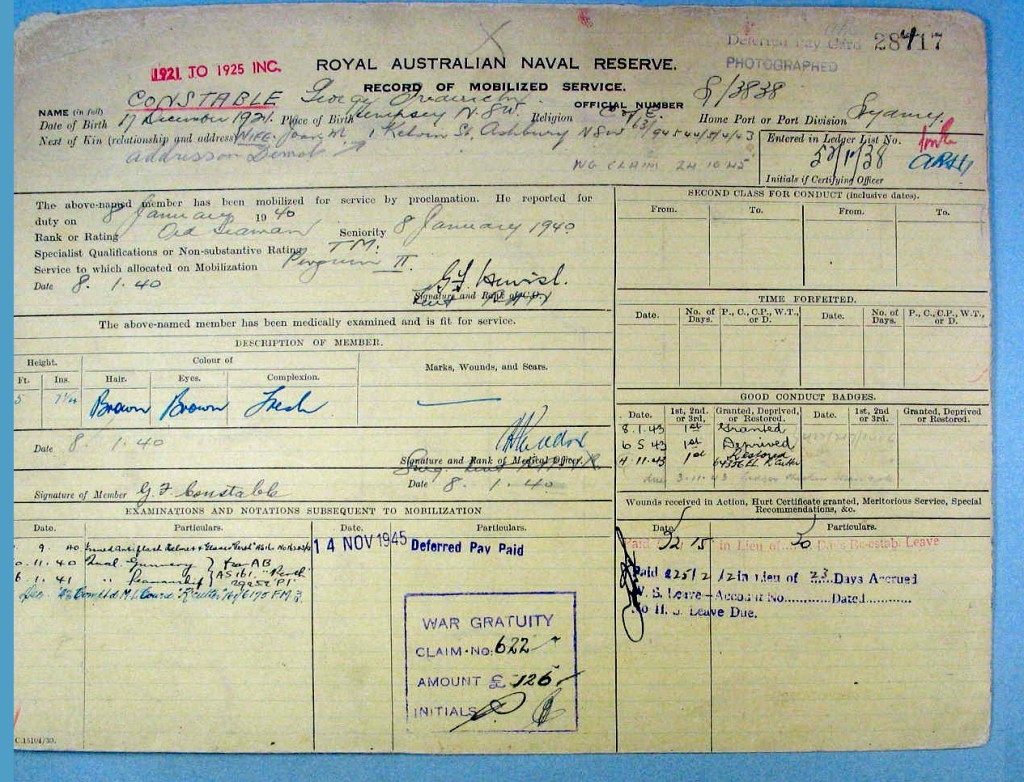 Deferred Pay Card 28717
PHOTOGRAPHED
1921 TO 1925 INC.
ROYAL AUSTRALIAN NAVAL RESERVE.
RECORD OF MOBILIZED SERVICE.
NAME (in full) CONSTABLE George Frederick
OFFICIAL NUMBER S/3838
Date of Birth 17 December 1921. Place of Birth Kempsey N.S.W. Religion C of E. Home Port or Port Division Sydney.
Next of Kin (relationship and address) WIFE. Joan M. 1 Kelvin St, Ashbury N.S.W.
address on Demob
NG CLAIM 24 10 45
Entered in Ledger List No.
Initials if Certifying Officer
The above-named member has been mobilized for service by proclamation. He reported for
duty on 8 January 1940
Rank or Rating Ord Seaman Seniority 8 January 1940
Specialist Qualifications or Non-substantive Rating T.M.
Service to which allocated on Mobilization Penguin II.
Date 8. 1. 40
Signature and Rank of C.O.
The above-named member has been medically examined and is fit for service.
DESCRIPTION OF MEMBER.
Height. Colour of Marks, Wounds, and Scars.
Ft. Ins. Hair. Eyes. Complexion.
5 Brown Brown Fresh
Date 8. 1. 40
Signature and Rank of Medical Officer.
Date 8. 1. 40
Signature of Member G F Constable
EXAMINATIONS AND NOTATIONS SUBSEQUENT TO MOBILIZATION
Date. Particulars. Date. Particulars.
14 NOV 1945 Deferred Pay Paid
11.40 Qual. Gunnery } for AB
1. 41 " Seamanship "Perth"
WAR GRATUITY
CLAIM No: 622
AMOUNT £ 126
INITIALS
C.15104/39.
SECOND CLASS FOR CONDUCT (inclusive dates).
From. To. From. To.
TIME FORFEITED.
Date. No. of Days. P., C., C.P., W.T., or D. Date. No. of Days. P., C., C.P., W.T., or D.
GOOD CONDUCT BADGES.
Date. 1st, 2nd or 3rd. Granted, Deprived or Restored. Date. 1st, 2nd or 3rd. Granted, Deprived or Restored.
8.1.43 1st Granted
6 5.43 1st Deprived
4.11.43 1st Restored
Wounds received in Action, Hurt Certificate granted, Meritorious Service, Special
Recommendations, &c.
Date. Particulars.
Paid 32/15/ in Lieu of 30 Days Re-estab Leave
Paid £25/2/12 in Lieu of 23 Days Accrued
W. S. Leave—Account No............Dated............
No H. S. Leave Due.